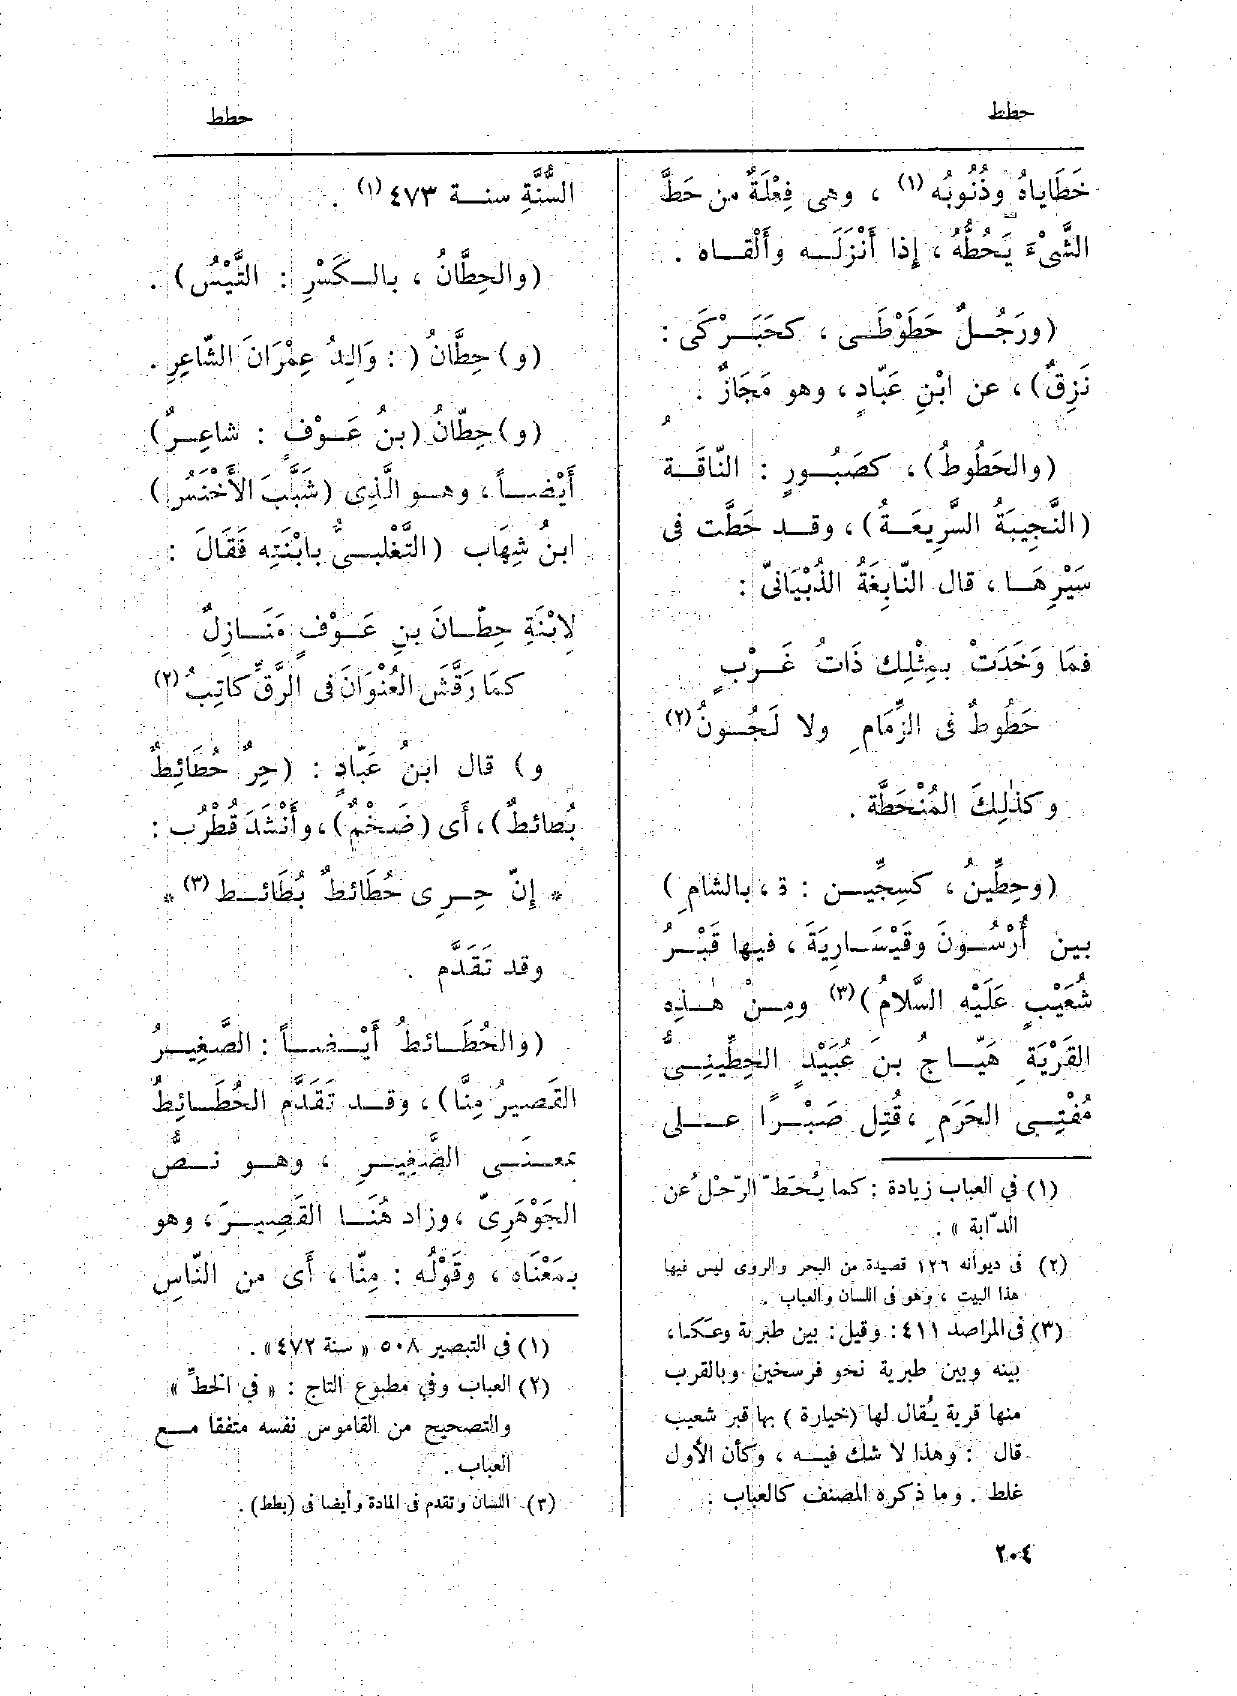 حطط
حطط
خَطَاياهُ وذُنُوبُه (١) ، وهى فِعْلَةٌ من حَطَّ
الشَّىْءَ يَحُطُّهُ ، إِذا أَنْزَلَــه وأَلْقــاه .
(ورَجُــلٌ حَطَوْطَــى ، كحَبَــرْكَى :
نَزِقٌ) ، عن ابْنِ عَبّادٍ ، وهو مَجَازٌ .
(والحَطُوطُ) ، كصَبُــورٍ : النّاقَــة
(النَّجِيبَةُ السَّرِيعَــةُ) ، وقــد حَطَّت فى
سَيْرِهَــا ، قال النّابِغَةُ الذُبْيَانىّ :
فمَا وَخَدَتْ بمِثْلِكِ ذَاتُ غَــرْبٍ
حَطُوطٌ فى الزِّمَامِ ولا لَجُــونُ (٢)
وكذٰلِكَ المُنْحَطَّة .
(وحِطِّينُ ، كسِجِّيــن : ة ، بالشام )
بين أُرْسُــونَ وقَيْسَــارِيَةَ ، فيها قَبْــرُ
شُعَيْبٍ عَلَيْه السَّلامُ )(٣) ومِــنْ هٰــذِه
القَرْيَةِ هَيّــاجُ بنَ عُبَيْدٍ الحِطِّينِــىُّ
مُفْتِــى الحَرَمِ ، قُتِل صَبْــرًا عــلى
(١) في العباب زيادة : كما يُحَطّ الرّحْلُ عن
الدّابة » .
(٢) فى ديوانه ١٢٦ قصيدة من البحر والروى ليس فيها
هذا البيت ، وهو فى اللسان والعباب .
(٣) فى المراصد ٤١١ : وقيل : بين طبرية وعكا ،
بينه وبين طبرية نحو فرسخين وبالقرب
منها قرية يُقال لها (خيارة ) بها قبر شعيب
قال : وهذا لا شك فيــه ، وكأن الأول
غلط . وما ذكره المصنف كالعباب .
٢٠٤
السُّنَّةِ سنــة ٤٧٣ (١) .
(والحِطَّانُ ، بالــكَسْرِ : التَّيْسُ) .
(و) حِطَّانُ ( : وَالِدُ عِمْرَانَ الشّاعِرِ .
(و) حِطّانُ (بنُ عَــوْفٍ : شاعِــرٌ)
أَيْضــاً ، وهــو الَّذِى (شَبَّبَ الأَخْنَسُ)
ابنُ شِهَاب (التَّغْلِبــىُّ بابْنَتِه فَقَالَ :
لِابْنَةِ حِطّــانَ بنِ عَــوْفٍ مَنَــازِلٌ
كمَا رَقَّشَ العُنْوَانَ فى الرَّقِّ كاتِبُ (٢)
و) قال ابنُ عَبّادٍ : (حِرٌ حُطَائِطٌ
بُطائطٌ) ، أَى (ضَخْمٌ) ، وأَنْشَدَ قُطْرُب :
* إِنّ حِــرِى حُطَائطٌ بُطَائــط (٣) *
وقد تَقَدَّم .
(والحُطَــائطُ أَيْــضــاً : الصَّغِيــرُ
القَصيرُ مِنَّا) ، وقــد تَقَدَّم الحُطَــائِطُ
بمعنَــى الصَّغِيــرِ ، وهــو نــصُّ
الجَوْهَرِىّ ، وزاد هُنَــا القَصِيــرَ ، وهو
بمَعْنَاه ، وقَوْلُه : مِنّا ، أَى من النّاسِ
(١) في التبصير ٥٠٨ « سنة ٤٧٢ » .
(٢) العباب وفي مطبوع التاج : « في الخطِّ »
والتصحيح من القاموس نفسه متفقا مــع
العباب .
(٣) اللسان وتقدم فى المادة وأيضا فى (بطط) .